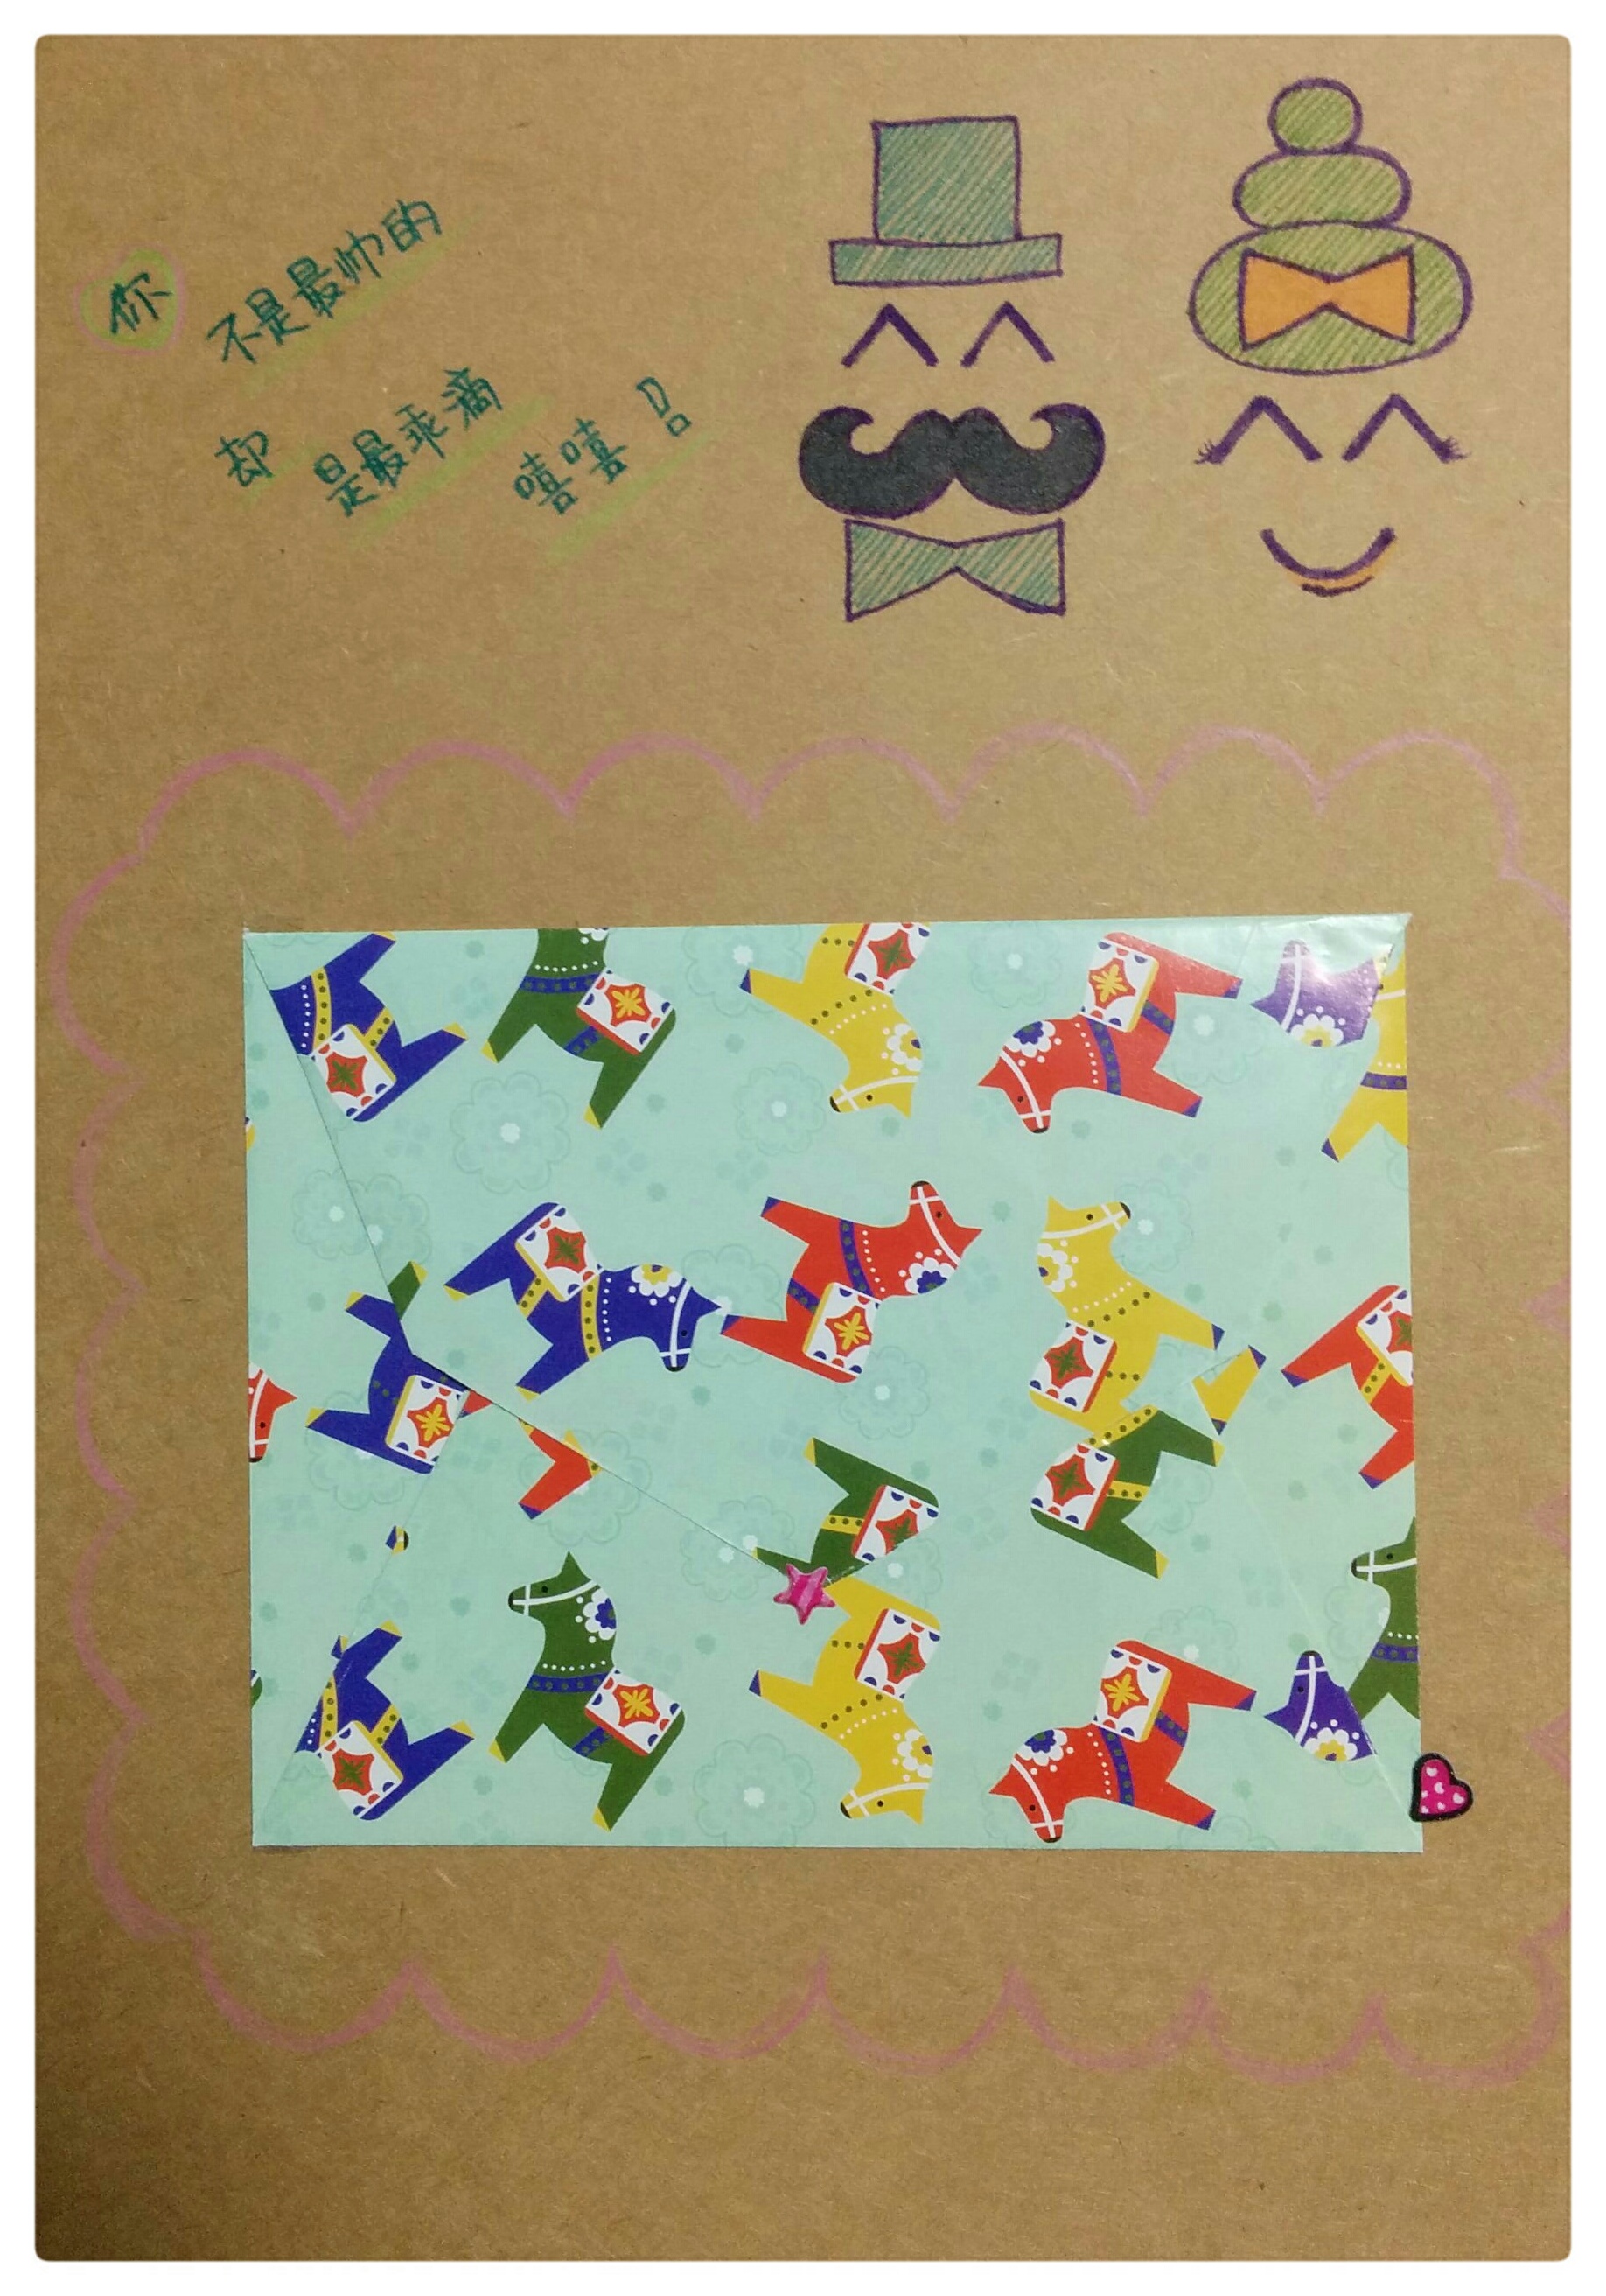 你 不是最帅的
却 是最乖滴 嘻嘻!!